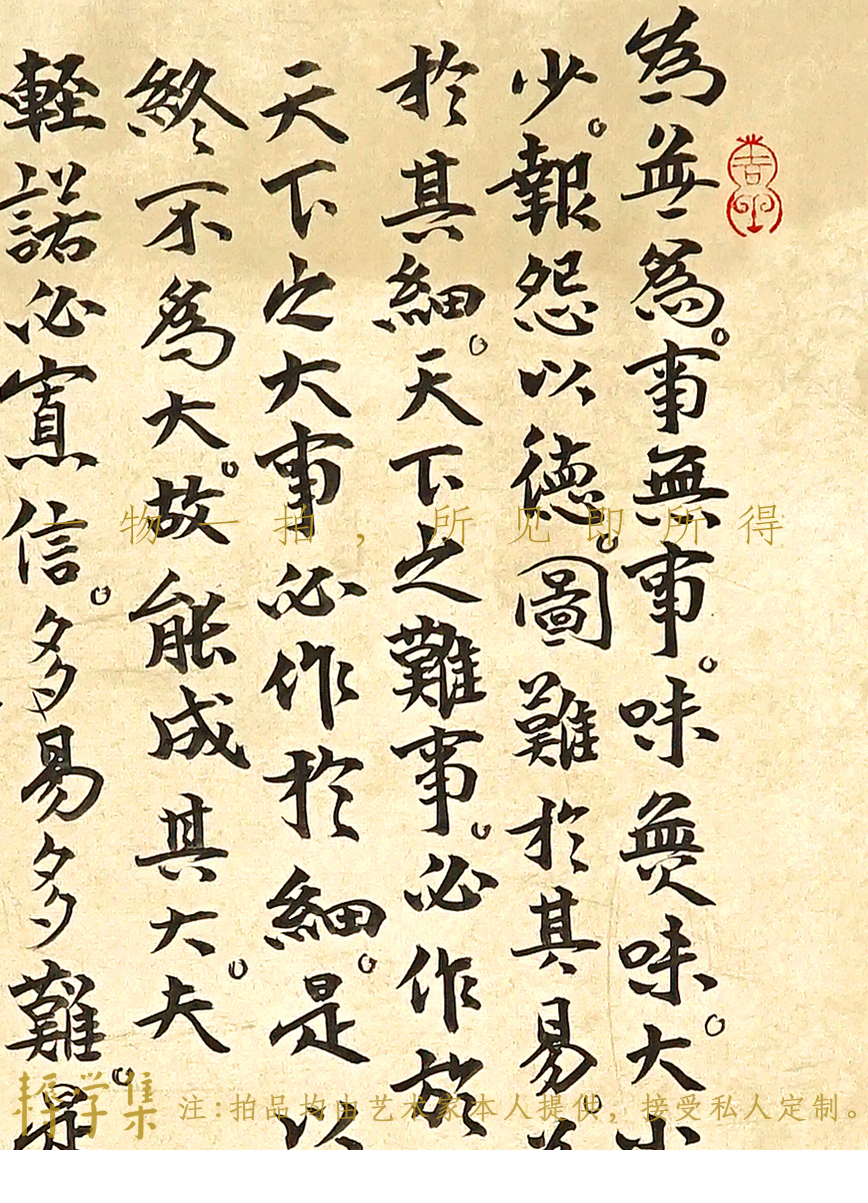 為無為。事無事。味無味。大小
少。報怨以德。圖難於其易。
於其細。天下之難事。必作於
天下之大事必作於細。是以
終不為大。故能成其大。夫
輕諾必寡信。多易多難。是
一物一拍，所见即所得
学集
注:拍品均由艺术家本人提供，接受私人定制。